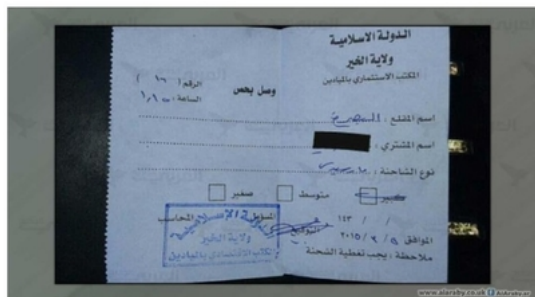 الدولة الاسلامية
ولاية الخير
المكتب الاستثماري بالميادين
وصل بحص
الرقم ( ١٦ )
الساعة :
اسم المقلع :
اسم المشتري :
نوع الشاحنة : مارسيدس
كبير متوسط صغير
المسؤول المحاسب
التوقيع
/ / ١٤٣
الموافق ٥ / ٢ / ٢٠١٥
ملاحظة : يجب تغطية الشحنة
الدولة الإسلامية
ولاية الخير
المكتب الاقتصادي بالميادين
www.alaraby.co.uk AlAraby.ar